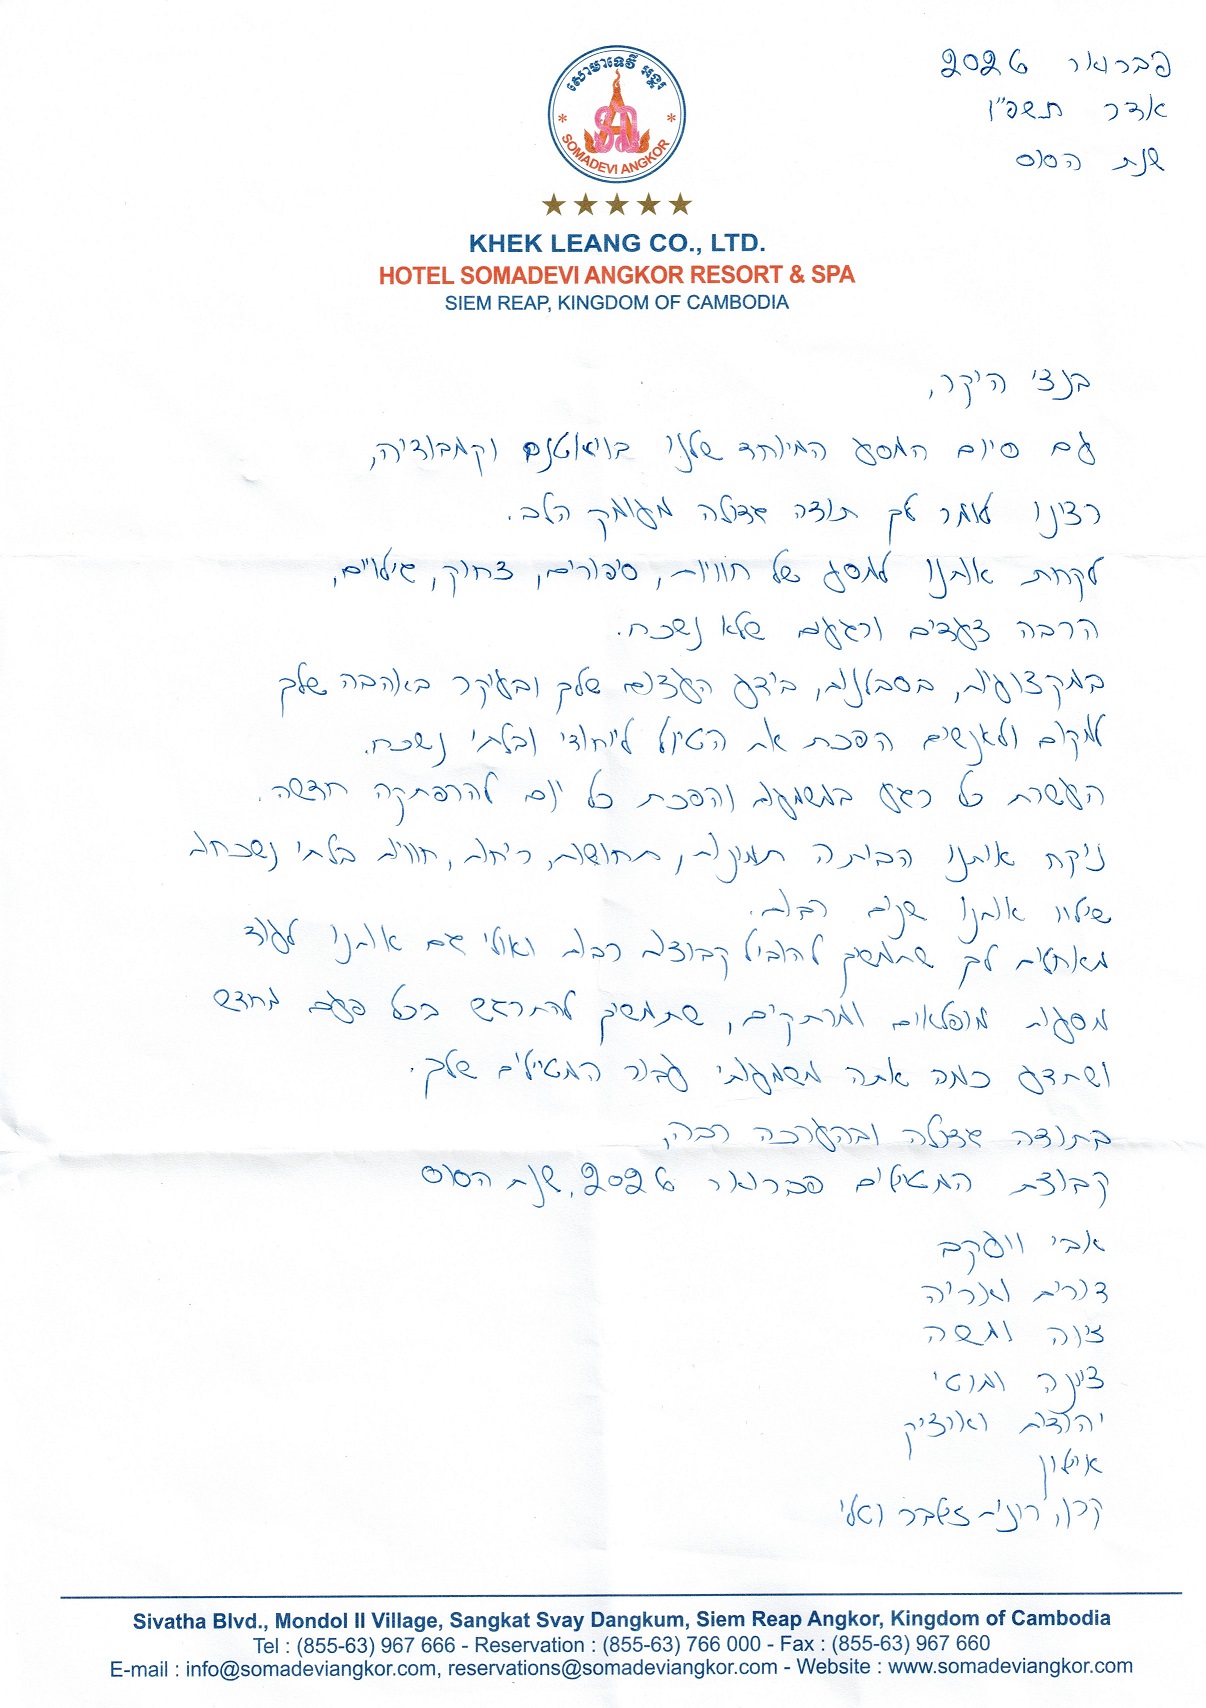 פברואר 2026
אדר תשפ"ו
שנת הסוס
សោមាទេវី អង្គរ
SOMADEVI ANGKOR
KHEK LEANG CO., LTD.
HOTEL SOMADEVI ANGKOR RESORT & SPA
SIEM REAP, KINGDOM OF CAMBODIA
בנצי היקר,
עם סיום המסע המיוחד שלנו בויאטנם וקמבודיה,
רצינו לומר לך תודה גדולה מעומק הלב.
לקחת אותנו למסע של חוויות, סיפורים, צחוק, גילויים,
הרבה צעדים ורגעים שלא נשכח.
במקצועיות, בסבלנות, בידע העצום שלך ובעיקר באהבה שלך
למקום ולאנשים הפכת את הטיול לייחודי ובלתי נשכח.
העשרת כל רגע במשמעות והפכת כל יום להרפתקה חדשה.
ניקח איתנו הביתה תמונות, תחושות, ריחות, חוויות בלתי נשכחות
שילוו אותנו שנים רבות.
מאחלים לך שתמשיך להוביל קבוצות רבות ואולי גם אותנו לעוד
מסעות מופלאים ומרתקים, שתמשיך להתרגש בכל פעם מחדש
ושתדע כמה אתה משמעותי עבור המטיילים שלך.
בתודה גדולה ובהערכה רבה,
קבוצת המטיילים פברואר 2026, שנת הסוס
אבי ויעקב
דורית ואריה
זיוה ומשה
ציונה ומוטי
יהודית ואיציק
אילון
קרן, רונית זילבר ואלי
Sivatha Blvd., Mondol II Village, Sangkat Svay Dangkum, Siem Reap Angkor, Kingdom of Cambodia
Tel : (855-63) 967 666 - Reservation : (855-63) 766 000 - Fax : (855-63) 967 660
E-mail : info@somadeviangkor.com, reservations@somadeviangkor.com - Website : www.somadeviangkor.com